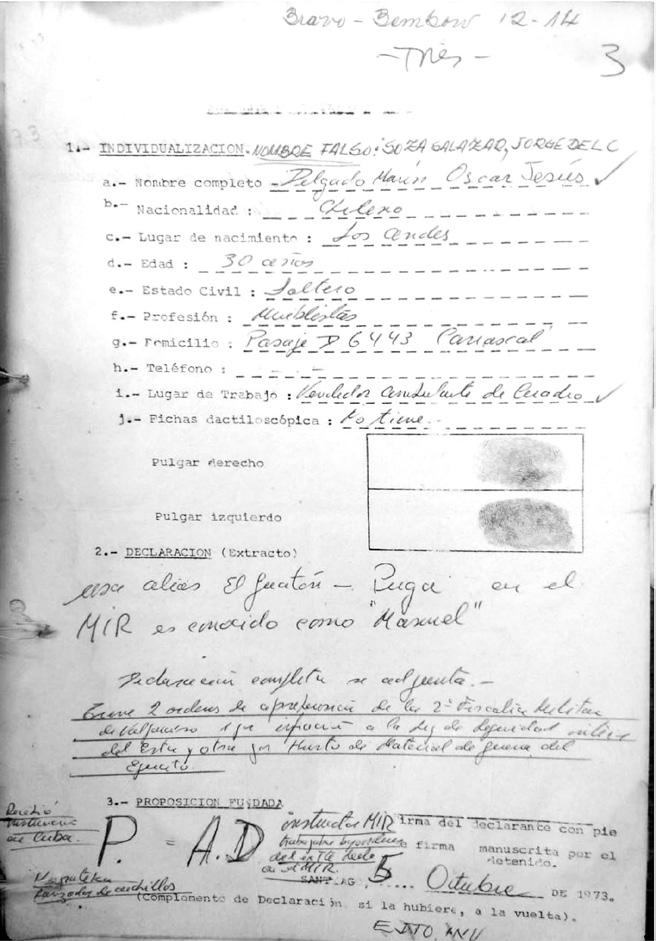 Bravo - Bembow 12-14
- Tres -
3
1.- INDIVIDUALIZACION. NOMBRE FALSO: SOZA SALAZAR, JORGE DEL C
a.- Nombre completo Delgado Marín Oscar Jesús ✓
b.- Nacionalidad : Chileno
c.- Lugar de nacimiento : Los Andes
d.- Edad : 30 años
e.- Estado Civil : Soltero
f.- Profesión : Mueblista
g.- Domicilio : Pasaje D 6443 Carrascal
h.- Teléfono : -
i.- Lugar de Trabajo : Vendedor ambulante de Cuadro ✓
j.- Fichas dactiloscópica : No tiene.
Pulgar derecho
Pulgar izquierdo
2.- DECLARACION (Extracto)
usa alias El Guatón - en el
MIR es conocido como "Manuel"
Declaración completa se adjunta.-
Tiene 2 ordenes de aprehensión de la 2ª Fiscalía Militar
de Valparaíso 1 por infracción a la Ley de Seguridad interior
del Estado y otra por Hurto de Material de guerra del
Ejército.
3.- PROPOSICION FUNDADA
Recibió
instrucción
en Cuba.
P. = A.D
instructor MIR
en el MIR.
firma del declarante con pie
de firma manuscrita por el
detenido.
lanzador de cuchillos
SANTIAGO, 5 .... Octubre DE 1973.
(Complemento de Declaración, si la hubiere, a la vuelta).